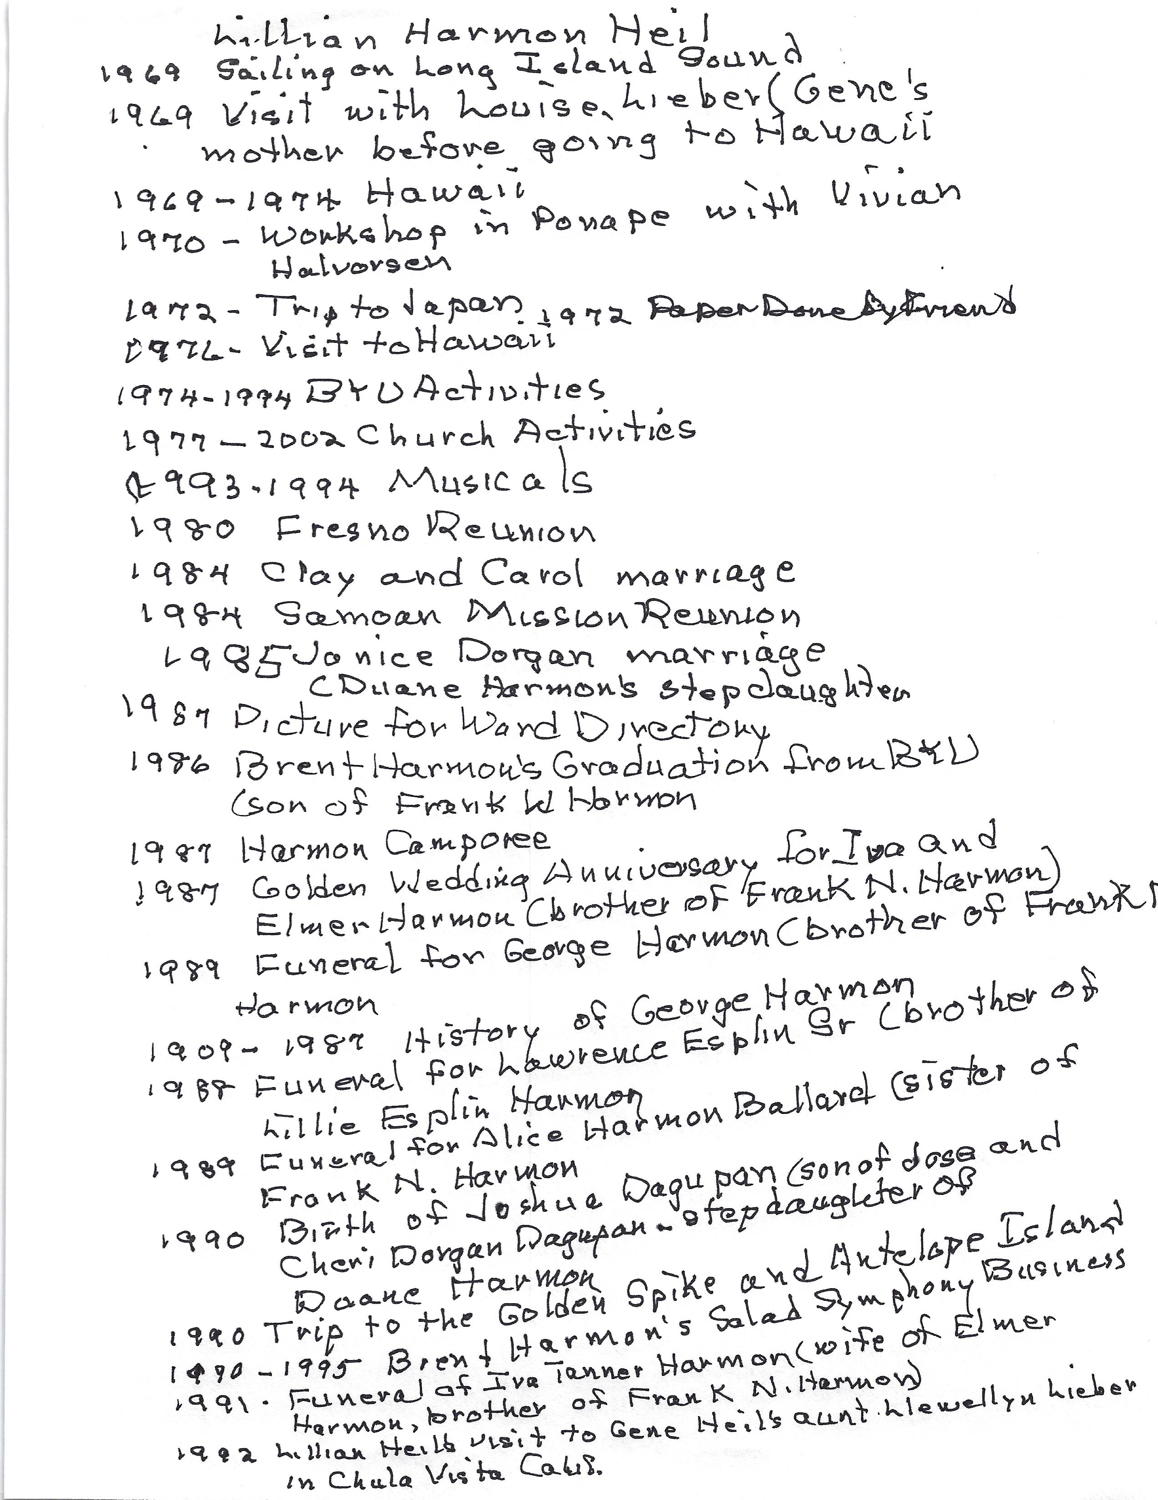 Lillian Harmon Heil
1969 Sailing on Long Island Sound
1969 Visit with Louise Lieber (Gene's
mother before going to Hawaii
1969-1974 Hawaii
1970 - Workshop in Ponape with Vivian
Halvorsen
1972 - Trip to Japan, 1972 Paper Done By Friend
1976 - Visit to Hawaii
1974-1994 BYU Activities
1977-2002 Church Activities
1993-1994 Musicals
1980 Fresno Reunion
1984 Clay and Carol marriage
1984 Samoan Mission Reunion
1985 Janice Dorgan marriage
(Duane Harmon's stepdaughter
1987 Picture for Ward Directory
1986 Brent Harmon's Graduation from BYU
(son of Frank W Harmon
1987 Harmon Camporee
1987 Golden Wedding Anniversary for Iva and
Elmer Harmon (brother of Frank N. Harmon)
1989 Funeral for George Harmon (brother of Frank
Harmon
1909-1987 History of George Harmon
1988 Funeral for Lawrence Esplin Sr (brother of
Lillie Esplin Harmon
1989 Funeral for Alice Harmon Ballard (sister of
Frank N. Harmon
1990 Birth of Joshua Dagupan (son of Jose and
Cheri Dorgan Dagupan - stepdaughter of
Duane Harmon
1990 Trip to the Golden Spike and Antelope Island
1990-1995 Brent Harmon's Salad Symphony Business
1991. Funeral of Iva Tanner Harmon (wife of Elmer
Harmon, brother of Frank N. Harmon)
1992 Lillian Heil's visit to Gene Heil's aunt Llewellyn Lieber
in Chula Vista Calif.